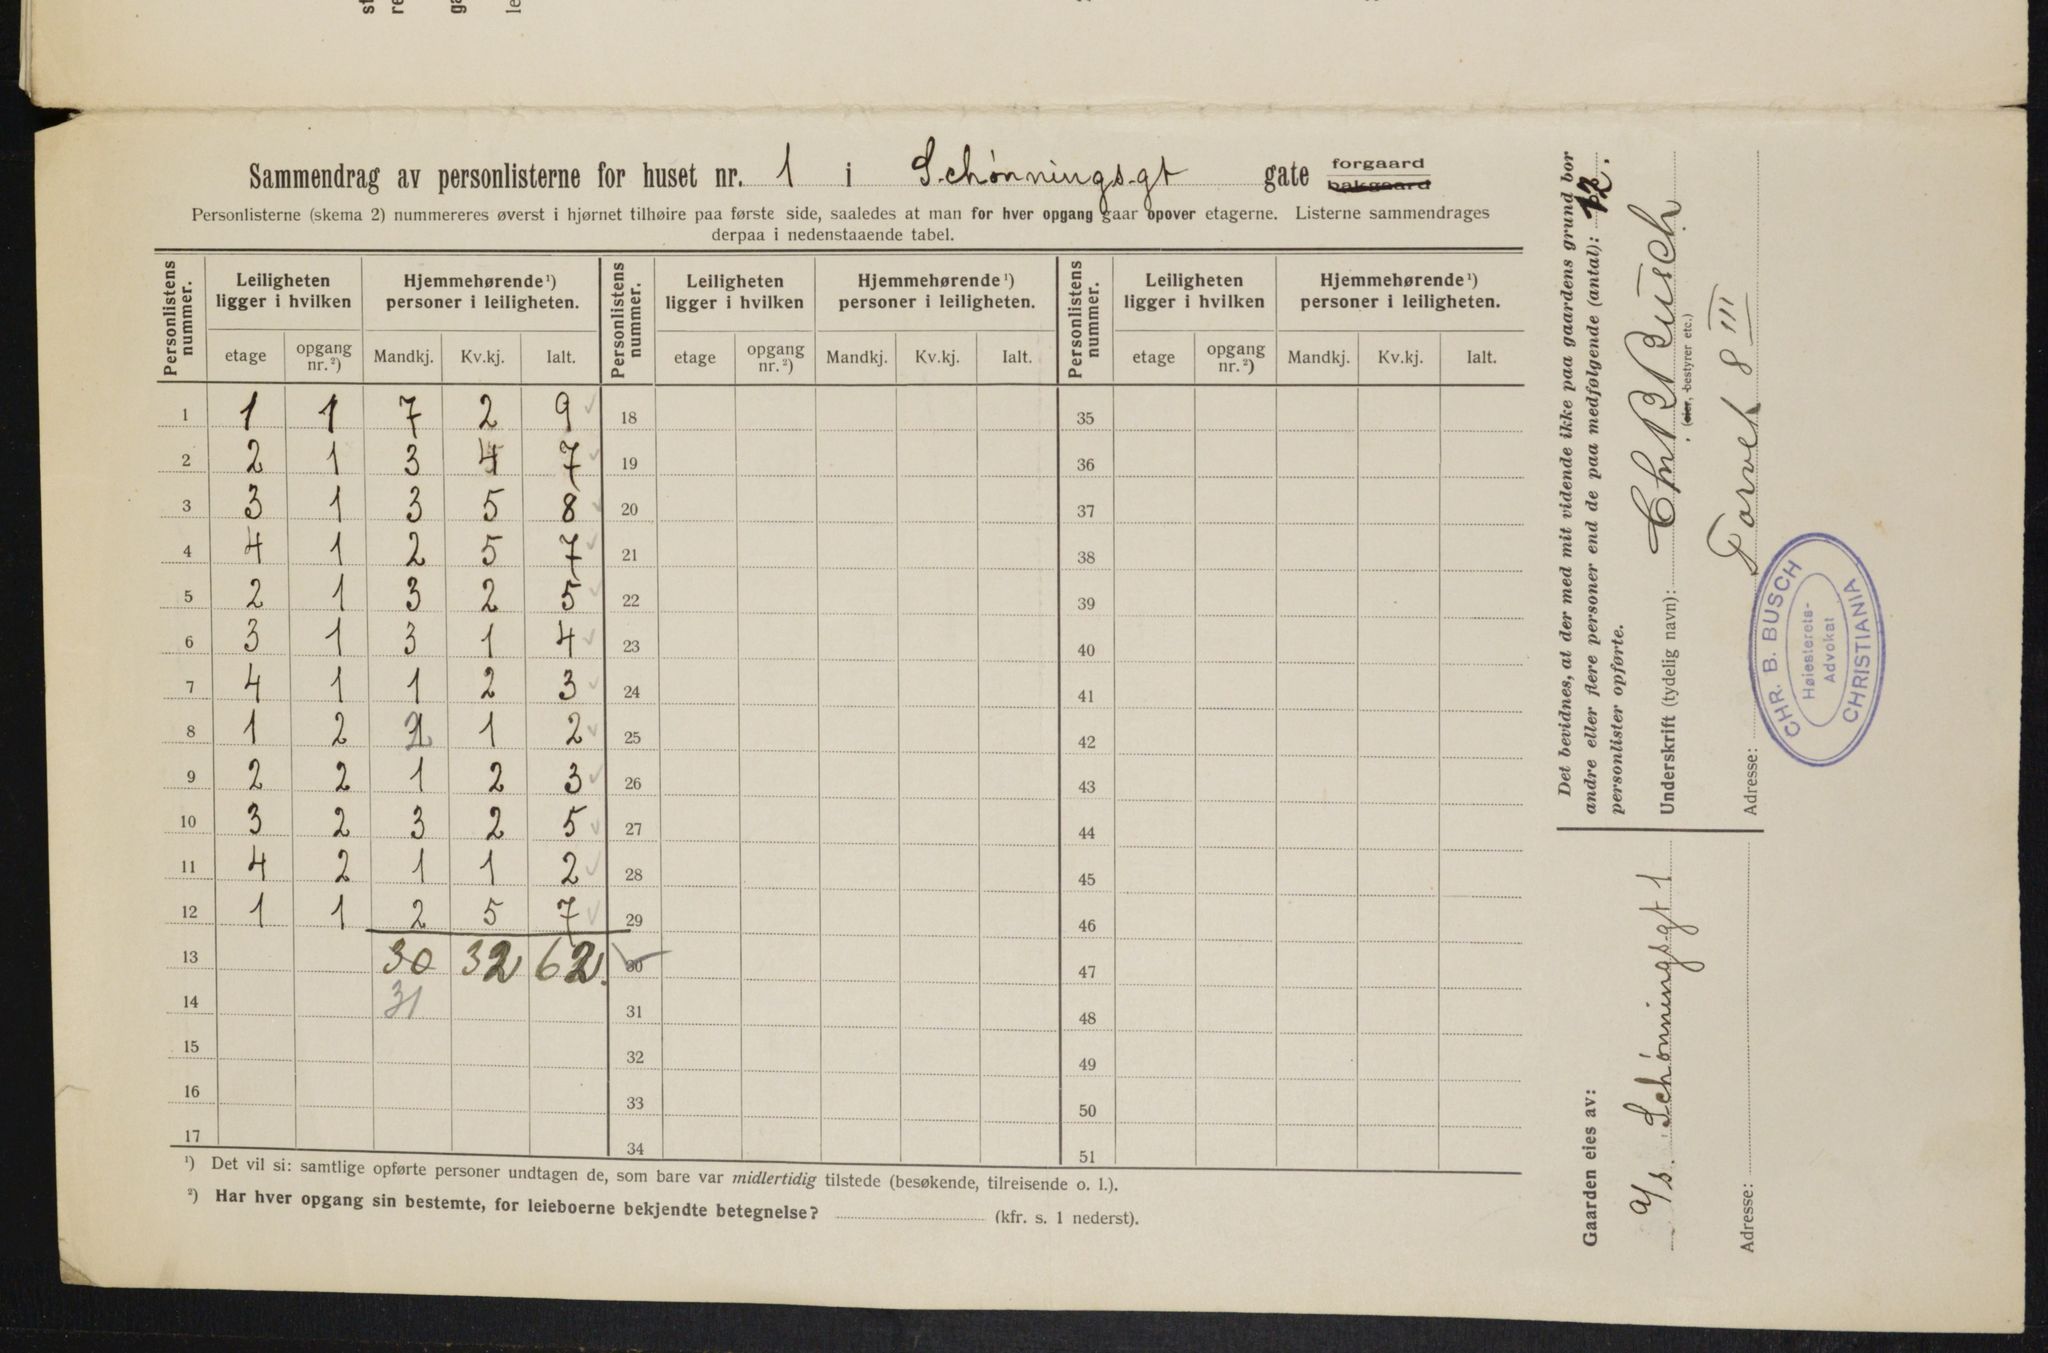 Sammendrag av personlisterne for huset nr. 1 i Schønningsgt gate forgaard bakgaard
Personlisterne (skema 2) nummereres øverst i hjørnet tilhøire paa første side, saaledes at man for hver opgang gaar opover etagerne. Listerne sammendrages
derpaa i nedenstaaende tabel.
Personlistens nummer. Leiligheten ligger i hvilken Hjemmehørende ¹) personer i leiligheten. Personlistens nummer. Leiligheten ligger i hvilken Hjemmehørende ¹) personer i leiligheten. Personlistens nummer. Leiligheten ligger i hvilken Hjemmehørende ¹) personer i leiligheten.
etage opgang nr. ²) Mandkj. Kv.kj. Ialt. etage opgang nr. ²) Mandkj. Kv.kj. Ialt. etage opgang nr. ²) Mandkj. Kv.kj. Ialt.
1 1 1 7 2 9 18 35
2 2 1 3 4 7 19 36
3 3 1 3 5 8 20 37
4 4 1 2 5 7 21 38
5 2 1 3 2 5 22 39
6 3 1 3 1 4 23 40
7 4 1 1 2 3 24 41
8 1 2 1 1 2 25 42
9 2 2 1 2 3 26 43
10 3 2 3 2 5 27 44
11 4 2 1 1 2 28 45
12 1 1 2 5 7 29 46
13 30 32 62. 30 47
14 31 31 48
15 32 49
16 33 50
17 34 51
¹) Det vil si: samtlige opførte personer undtagen de, som bare var midlertidig tilstede (besøkende, tilreisende o. l.).
²) Har hver opgang sin bestemte, for leieboerne bekjendte betegnelse? (kfr. s. 1 nederst).
Det bevidnes, at der med mit vidende ikke paa gaardens grund bor
andre eller flere personer end de paa medfølgende (antal): 12.
personlister opførte.
Underskrift (tydelig navn): Chr B Busch
(eier, bestyrer etc.)
Adresse: Torvet 8 III
CHR. B. BUSCH
Høiesterets-
Advokat
CHRISTIANIA
Gaarden eies av:
a/s. Schønningsgt 1
Adresse: